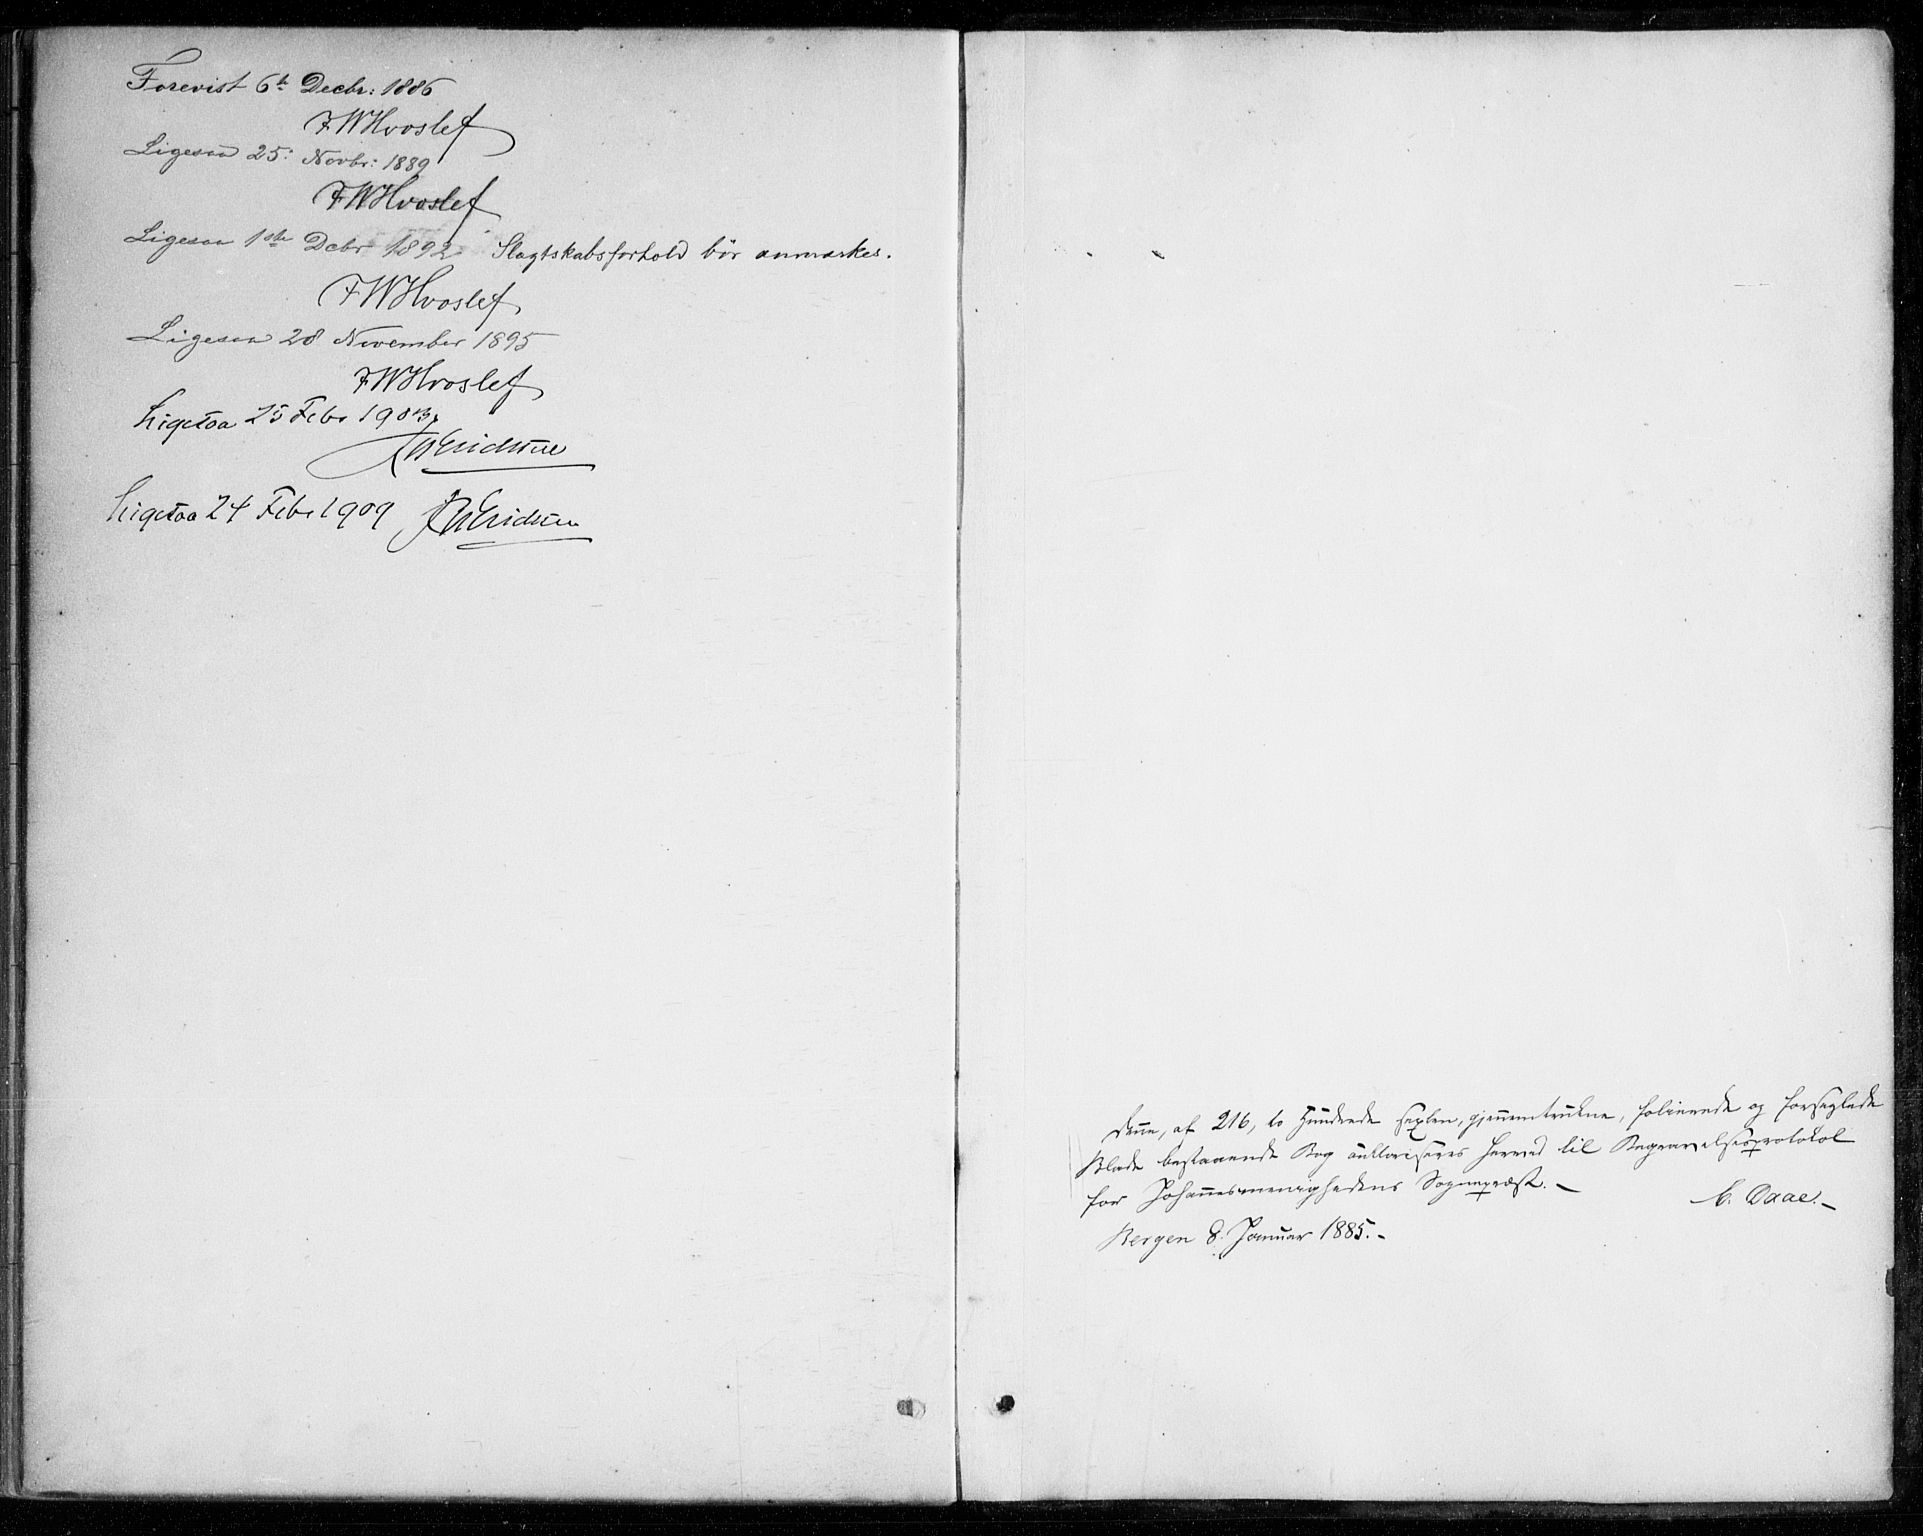 Forevist 6te Decbr: 1886
F W Hvoslef
Ligesaa 25: Novbr: 1889
F W Hvoslef
Ligesaa 1ste Dcbr 1892 Slægtskabsforhold bör anmærkes.
F W Hvoslef
Ligesaa 28 November 1895
F W Hvoslef
Ligesaa 25 Febr 1903
Ligesaa 24 Febr 1909
Denne, af 216, to Hundrede sexten, gjennemtrukne, folierede og forseglede
Blade bestaaende Bog autoriseres herved til Begravelsesprotokol
for Johannesmenighedens Sognepræst. –
C. Daae. –
Bergen 8. Januar 1885. –